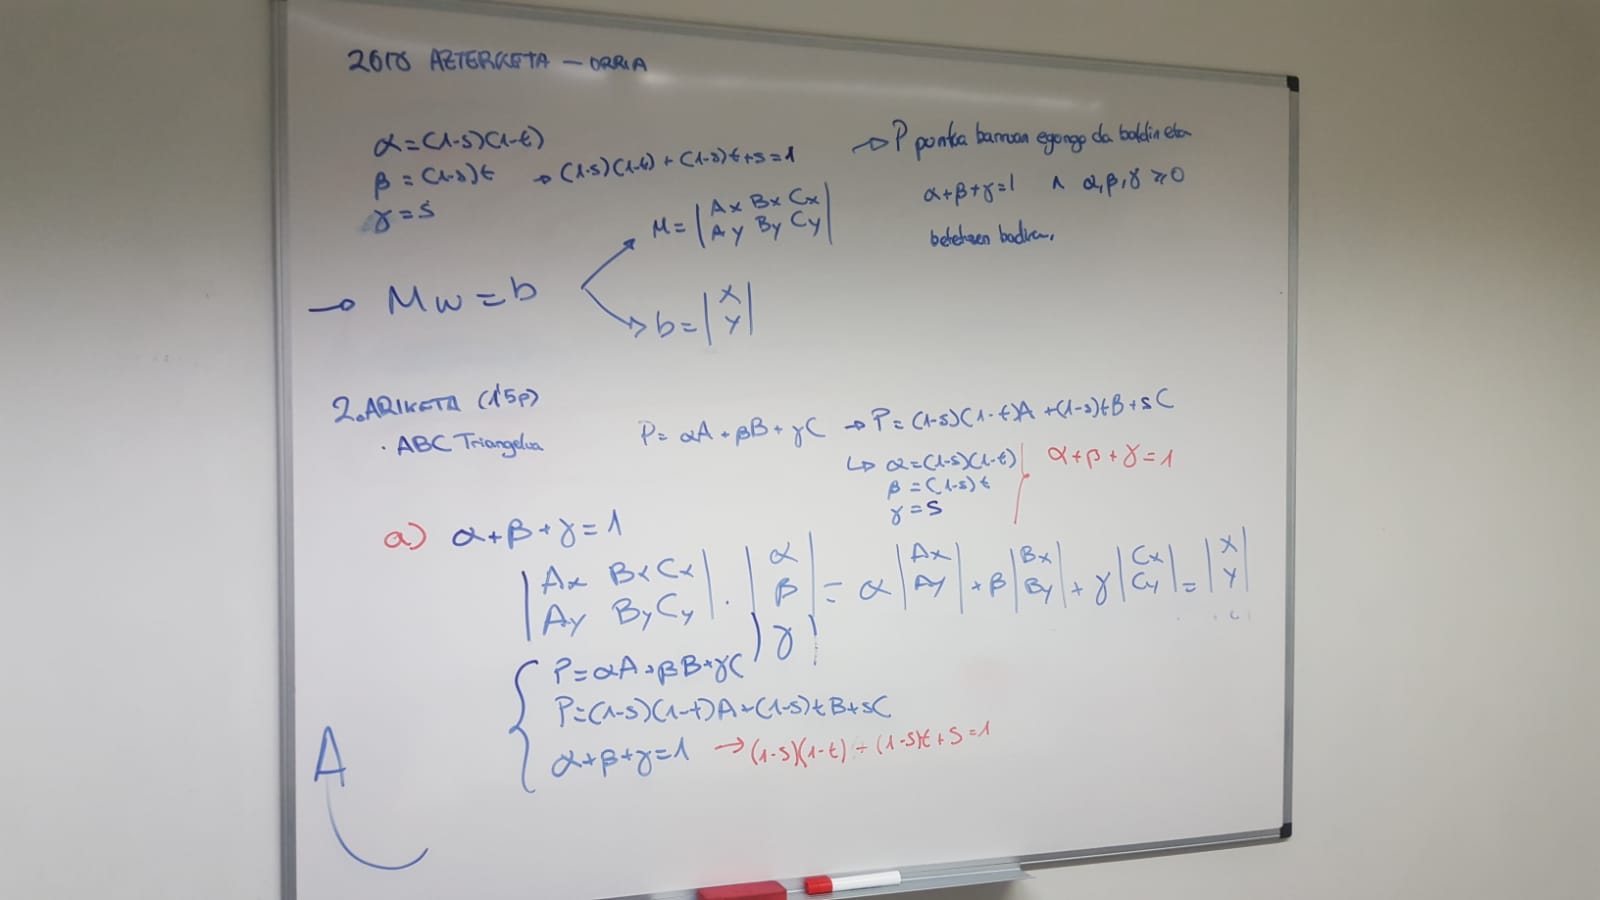 AZTERKETA - ORRIA
α=(1-s)(1-t)
β=(1-s)t → (1-s)(1-t)+(1-s)t+s=1
γ=s
→ P puntua barruan egongo da baldin eta
α+β+γ=1 ∧ α,β,γ ⩾0
betetzen badira.
M=|Ax Bx Cx|
|Ay By Cy|
→ Mw=b
b=|x|
|y|
2.ARIKETA (1'5p)
· ABC Triangelua
P=αA+βB+γC → P=(1-s)(1-t)A+(1-s)tB+sC
↳ α=(1-s)(1-t)
β=(1-s)t
γ=s
α+β+γ=1
a) α+β+γ=1
|Ax Bx Cx| · |α| = α|Ax| + β|Bx| + γ|Cx| = |x|
|Ay By Cy| |β| |Ay| |By| |Cy| |y|
|γ|
P=αA+βB+γC
P=(1-s)(1-t)A+(1-s)tB+sC
α+β+γ=1 → (1-s)(1-t)+(1-s)t+s=1
A